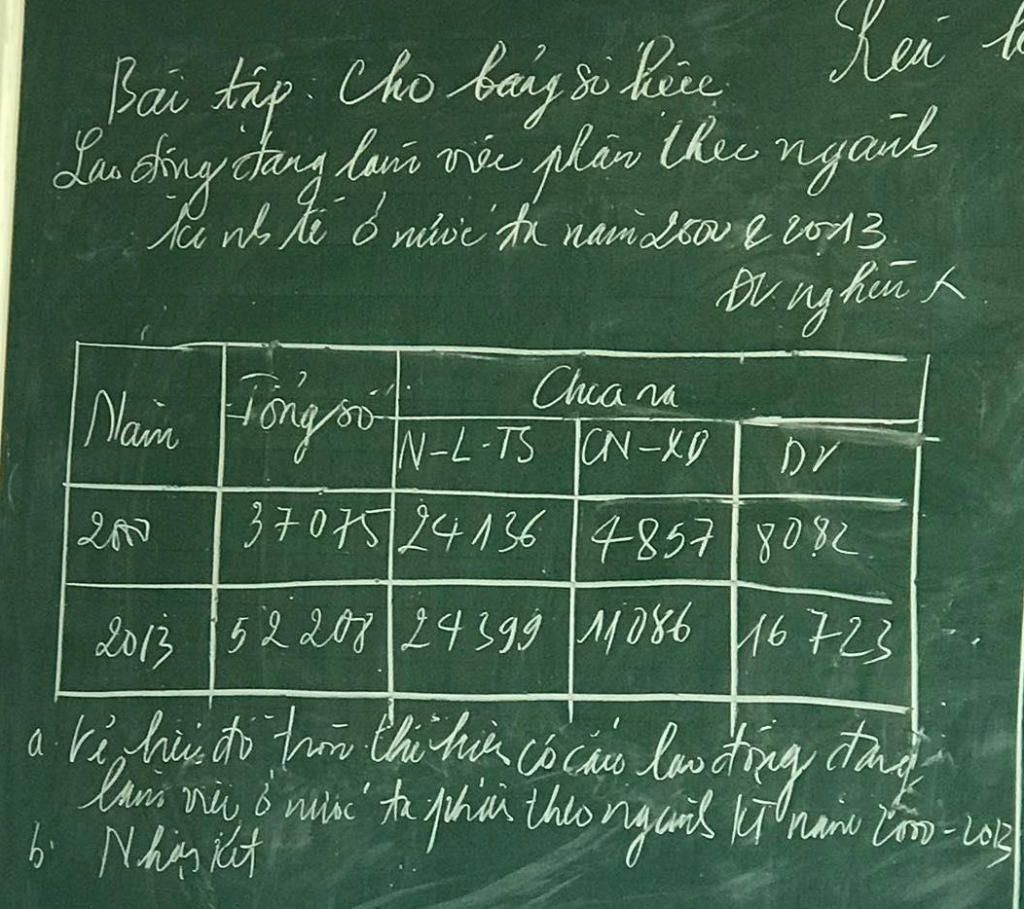 Bài tập. Cho bảng số liệu
Lao động đang làm việc phân theo ngành
kinh tế ở nước ta năm 2000 & 2013
ĐV nghìn
Năm Tổng số Chia ra
N-L-TS CN-XD DV
2000 37075 24136 4857 8082
2013 52208 24399 11086 16723
a. Vẽ biểu đồ tròn thể hiện cơ cấu lao động đang
làm việc ở nước ta phân theo ngành KT năm 2000-2013
b. Nhận xét